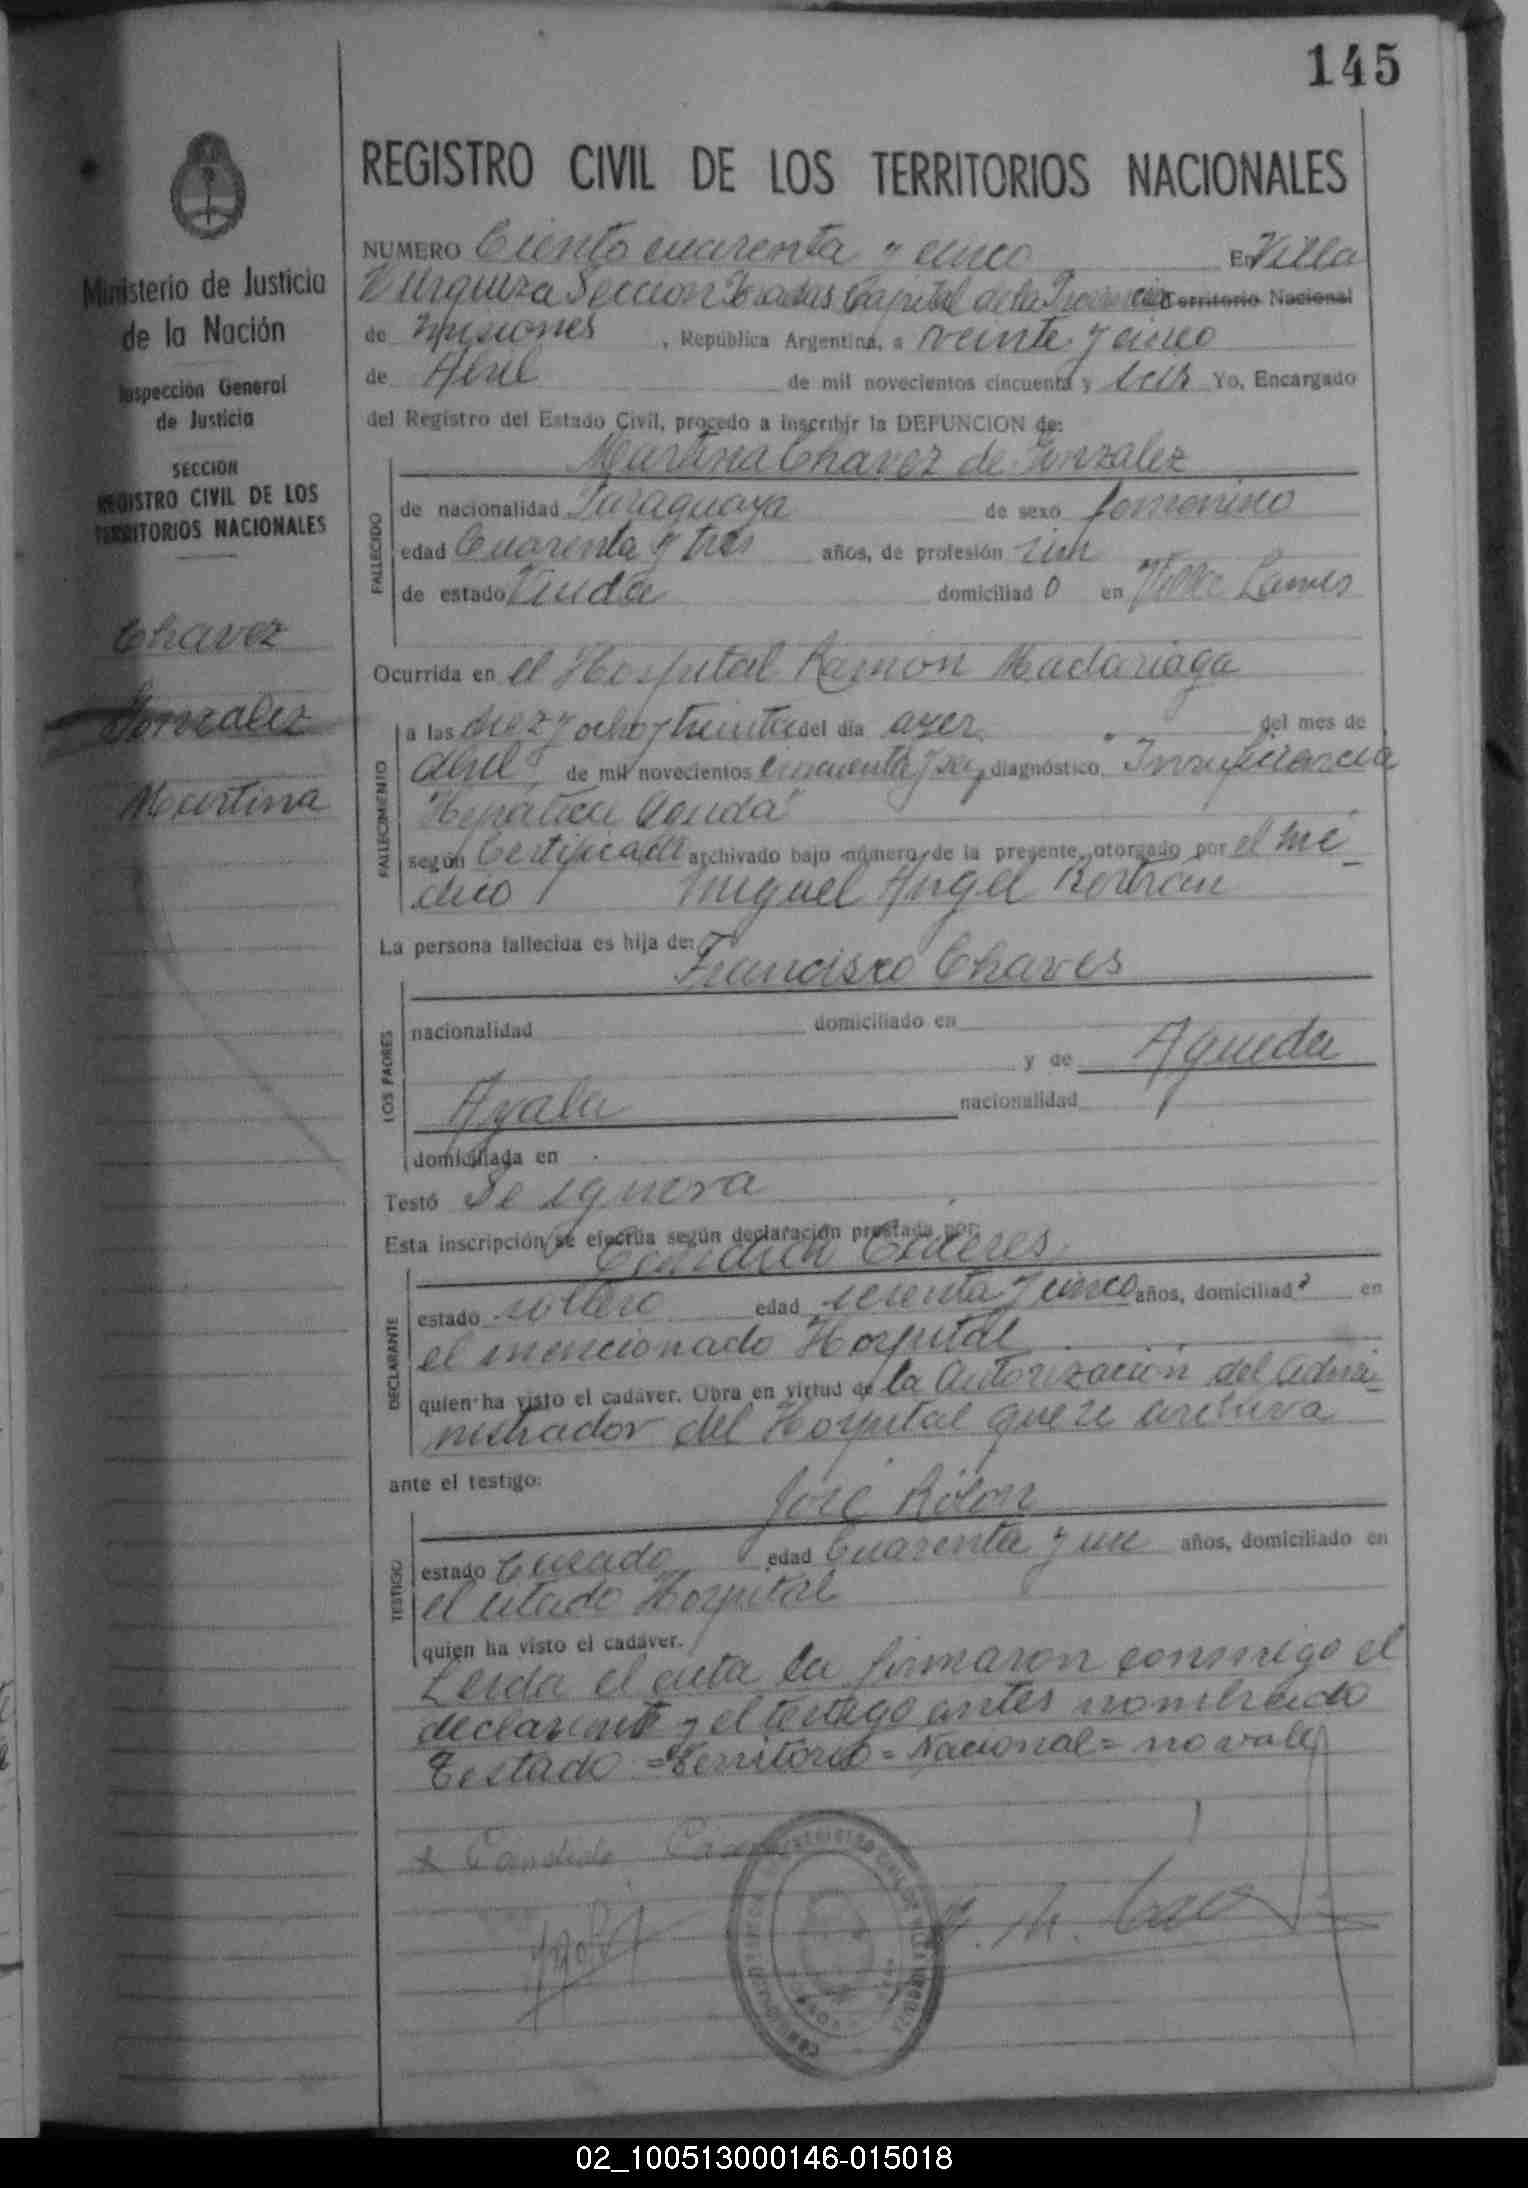 145
REGISTRO CIVIL DE LOS TERRITORIOS NACIONALES
Ministerio de Justicia
de la Nación
Inspección General
de Justicia
SECCION
REGISTRO CIVIL DE LOS
TERRITORIOS NACIONALES
Chavez
Gonzalez
Martina
NUMERO Ciento cuarenta y cinco En Villa
Urquiza Seccion Posadas Capital de la Provincia Territorio Nacional
de Misiones, República Argentina, a veinte y cinco
de Abril de mil novecientos cincuenta y seis Yo, Encargado
del Registro del Estado Civil, procedo a inscribir la DEFUNCION de:
Martina Chavez de Gonzalez
FALLECIDO
de nacionalidad Paraguaya de sexo femenino
edad Cuarenta y tres años, de profesión sin
de estado Viuda domiciliad o en Villa Lanus
Ocurrida en el Hospital Ramon Madariaga
FALLECIMIENTO
a las diez y ocho y treinta del día ayer del mes de
Abril de mil novecientos cincuenta y seis, diagnóstico Insuficiencia
"Hepática Aguda"
según Certificado archivado bajo número de la presente, otorgado por el mé-
dico Miguel Angel
La persona fallecida es hija de:
Francisco Chaves
LOS PADRES
nacionalidad domiciliado en
y de Agueda
Ayala nacionalidad
domiciliada en
Testó Se ignora
Esta inscripción se efectúa según declaración prestada por:
Candido Caceres
DECLARANTE
estado soltero edad sesenta y cinco años, domiciliad o en
el mencionado Hospital
quien ha visto el cadáver. Obra en virtud de la Autorización del Admi-
nistrador del Hospital que se archiva
ante el testigo:
José Rolon
TESTIGO
estado Casado edad Cuarenta y un años, domiciliado en
el citado Hospital
quien ha visto el cadáver.
Leida el acta la firmaron conmigo el
declarante y el testigo antes nombrado
Testado = Territorio = Nacional = no vale
Candido
02_100513000146-015018